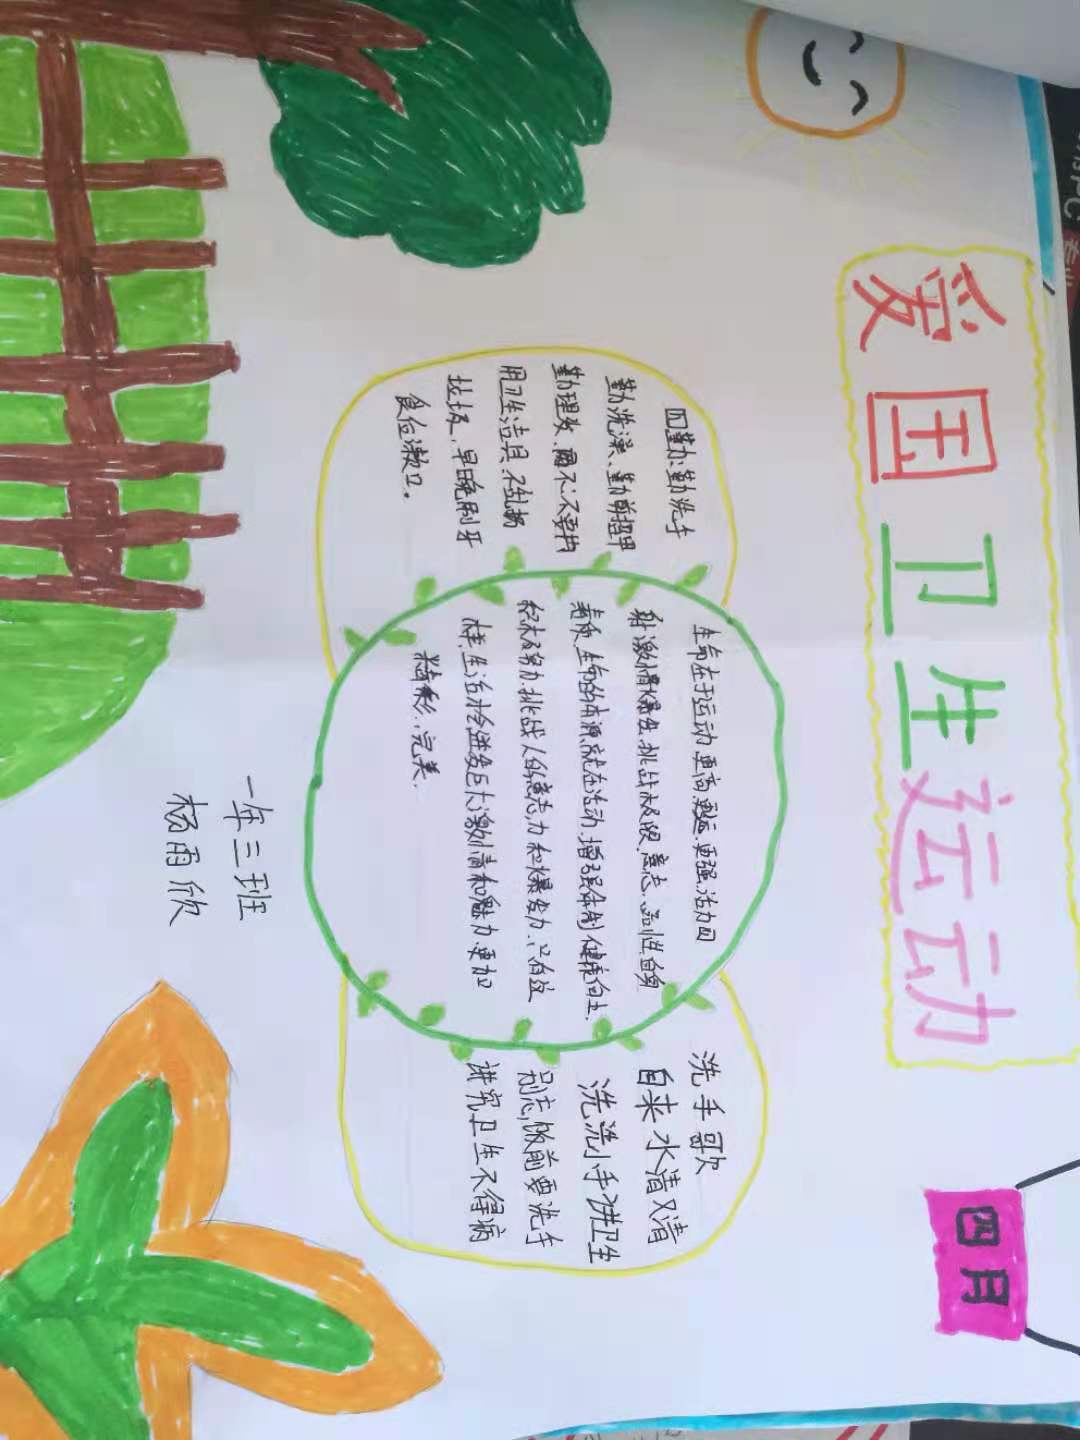 爱国卫生运动
四月
四勤:勤洗手
勤洗澡、勤剪指甲
勤理发,
用卫生洁具,不乱扔
垃圾,早晚刷牙
食位漱卫。
生命在于运动,更高,更远,更强,活力四
射,激情爆发,挑战极限,意志,品性,自身
素质,生命的本源,就在活动,增强体制,健康向上,
积极努力,挑战人的意志力和爆发力,只有这
样,生活才会迸发巨大激情和魅力,更加
精彩,完美.
洗手歌
自来水清又清
洗洗小手讲卫生
别忘,饭前要洗手
讲究卫生不得病
一年三班
杨雨欣